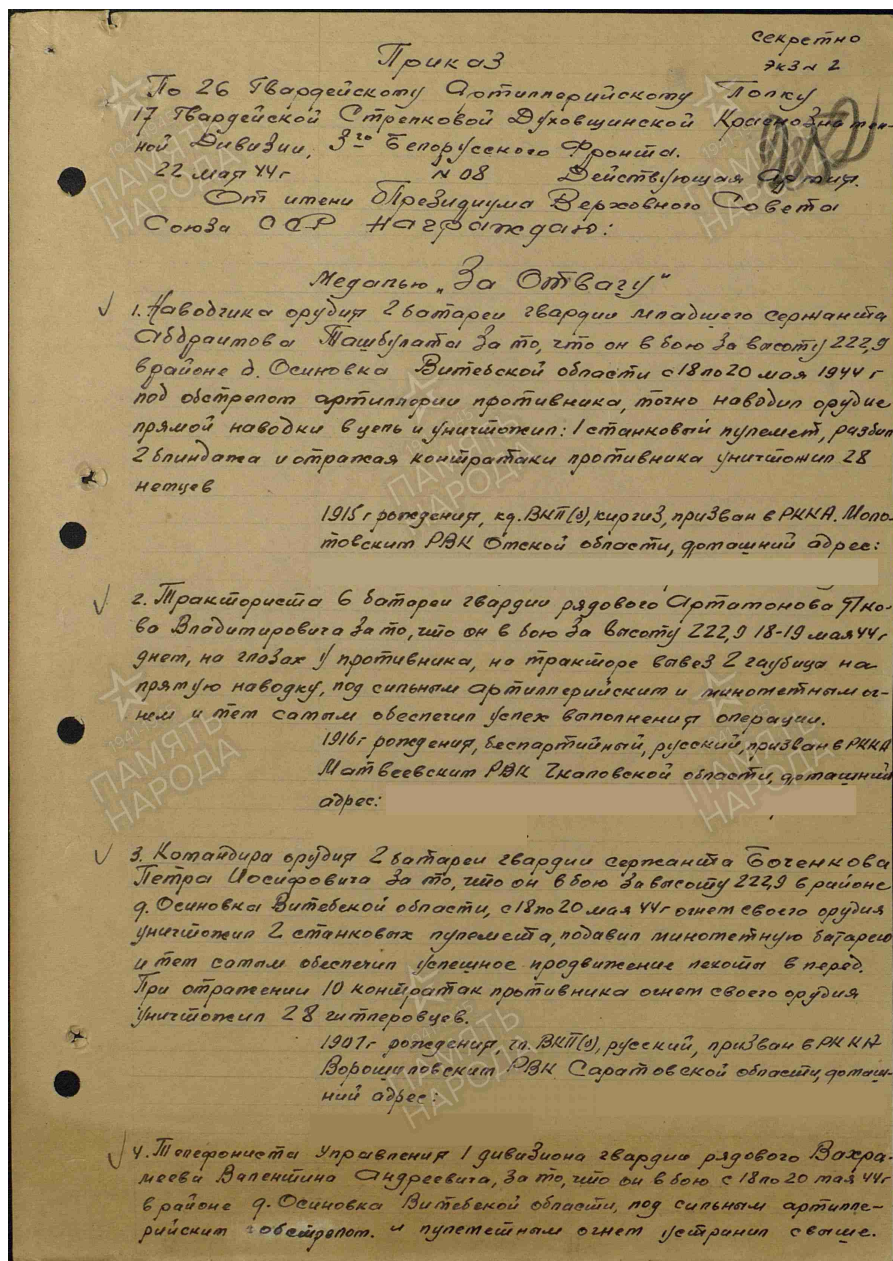 секретно
экз № 2
Приказ
По 26 Гвардейскому Артиллерийскому Полку
17 Гвардейской Стрелковой Духовщинской Краснознамен-
ной Дивизии, 3го Белорусского Фронта.
22 мая 44 г № 08 Действующая Армия.
От имени Президиума Верховного Совета
Союза ССР Награждаю:
Медалью „За Отвагу"
1. Наводчика орудия 2 батареи гвардии младшего сержанта
Абдраимова Ташбулата за то, что он в бою за высоту 222,9
в районе д. Осиновка Витебской области с 18 по 20 мая 1944 г
под обстрелом артиллерии противника, точно наводил орудие
прямой наводки в цель и уничтожил: 1 станковый пулемет, разбил
2 блиндажа и отражая контратаки противника уничтожил 28
немцев
1915 г рождения, кд. ВКП(б), киргиз, призван в РККА. Моло-
товским РВК Омской области, домашний адрес:
2. Тракториста 6 батареи гвардии рядового Артамонова Яко-
ва Владимировича за то, что он в бою за высоту 222,9 18-19 мая 44 г
днем, на глазах у противника, на тракторе вывез 2 гаубица на
прямую наводку, под сильным артиллерийским и минометным ог-
нем и тем самым обеспечил успех выполнения операции.
1916 г рождения, беспартийный, русский, призван в РККА
Матвеевским РВК Чкаловской области, домашний
адрес:
3. Командира орудия 2 батареи гвардии сержанта Боченкова
Петра Иосифовича за то, что он в бою за высоту 222,9 в районе
д. Осиновка Витебской области, с 18 по 20 мая 44 г огнем своего орудия
уничтожил 2 станковых пулемета, подавил минометную батарею
и тем самым обеспечил успешное продвижение пехоты в перед.
При отражении 10 контратак противника огнем своего орудия
уничтожил 28 гитлеровцев.
1907 г рождения, чл. ВКП(б), русский, призван в РККА
Ворошиловским РВК Саратовской области, домаш-
ний адрес:
4. Телефониста Управления 1 дивизиона гвардии рядового Вахра-
меева Валентина Андреевича, за то, что он в бою с 18 по 20 мая 44 г
в районе д. Осиновка Витебской области, под сильным артилле-
рийским обстрелом. и пулеметным огнем устранил свыше.
ПАМЯТЬ
НАРОДА